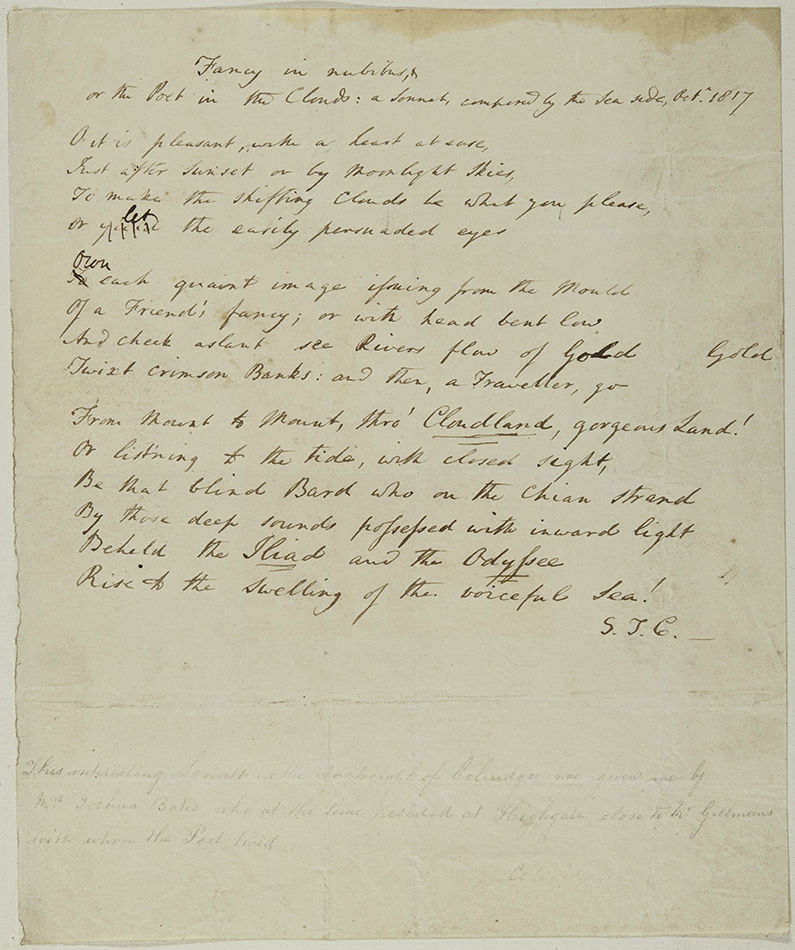 Fancy in nubibus,
or the Poet in the Clouds: a Sonnet, composed by the Sea side, Octr. 1817
O it is pleasant, with a heart at ease,
Just after Sunset or by Moonlight Skies,
To make the shifting Clouds be what you please,
or let the easily persuaded eyes
Own
each quaint image issuing from the Mould
Of a Friend's fancy; or with head bent low
And cheek aslant see Rivers flow of Gold Gold
Twixt crimson Banks: and then, a Traveller, go
From Mount to Mount, thro' Cloudland, gorgeous Land!
Or list'ning to the tide, with closed sight,
Be that blind Bard who on the Chian strand
By those deep sounds possessed with inward light
Beheld the Iliad and the Odyssee
Rise to the swelling of the voiceful Sea!
S. T. C.
This interesting Sonnet in the autograph of Coleridge was given me by
Mrs Joshua Bates who at the time resided at Highgate close to Mr Gillmans
with whom the Poet lived